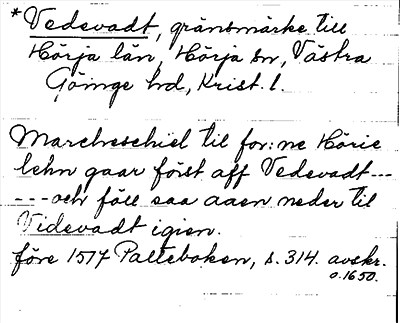 *Vedevadt, gränsmärke till
Hörja län, Hörja sn, Västra
Göinge hd, Krist. l.
Marcheschiel til for:ne Hörie
lehn gaar först aff Vedevadt---
---och föll saa aaen neder til
Videvadt igien.
före 1577 Palteboken, s. 314. avskr.
o.1650.